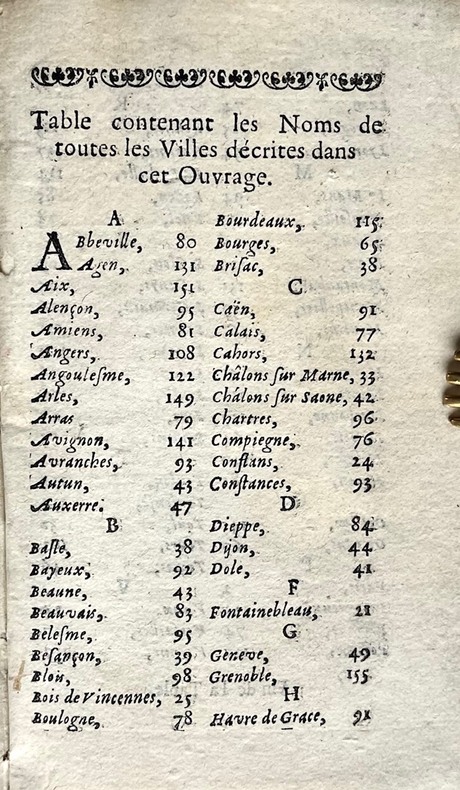 Table contenant les Noms de
toutes les Villes décrites dans
cet Ouvrage.
A
ABbeville, 80
Agen, 131
Aix, 151
Alençon, 95
Amiens, 81
Angers, 108
Angoulesme, 122
Arles, 149
Arras 79
Avignon, 141
Avranches, 93
Autun, 43
Auxerre. 47
B
Basle, 38
Bayeux, 92
Beaune, 43
Beauvais, 83
Belesme, 95
Besançon, 39
Blois, 98
Bois de Vincennes, 25
Boulogne, 78
Bourdeaux, 115
Bourges, 65
Brisac, 38
C
Caën, 91
Calais, 77
Cahors, 132
Châlons sur Marne, 33
Châlons sur Saone, 42
Chartres, 96
Compiegne, 76
Conflans, 24
Constances, 93
D
Dieppe, 84
Dijon, 44
Dole, 41
F
Fontainebleau, 21
G
Geneve, 49
Grenoble, 155
H
Havre de Grace, 91